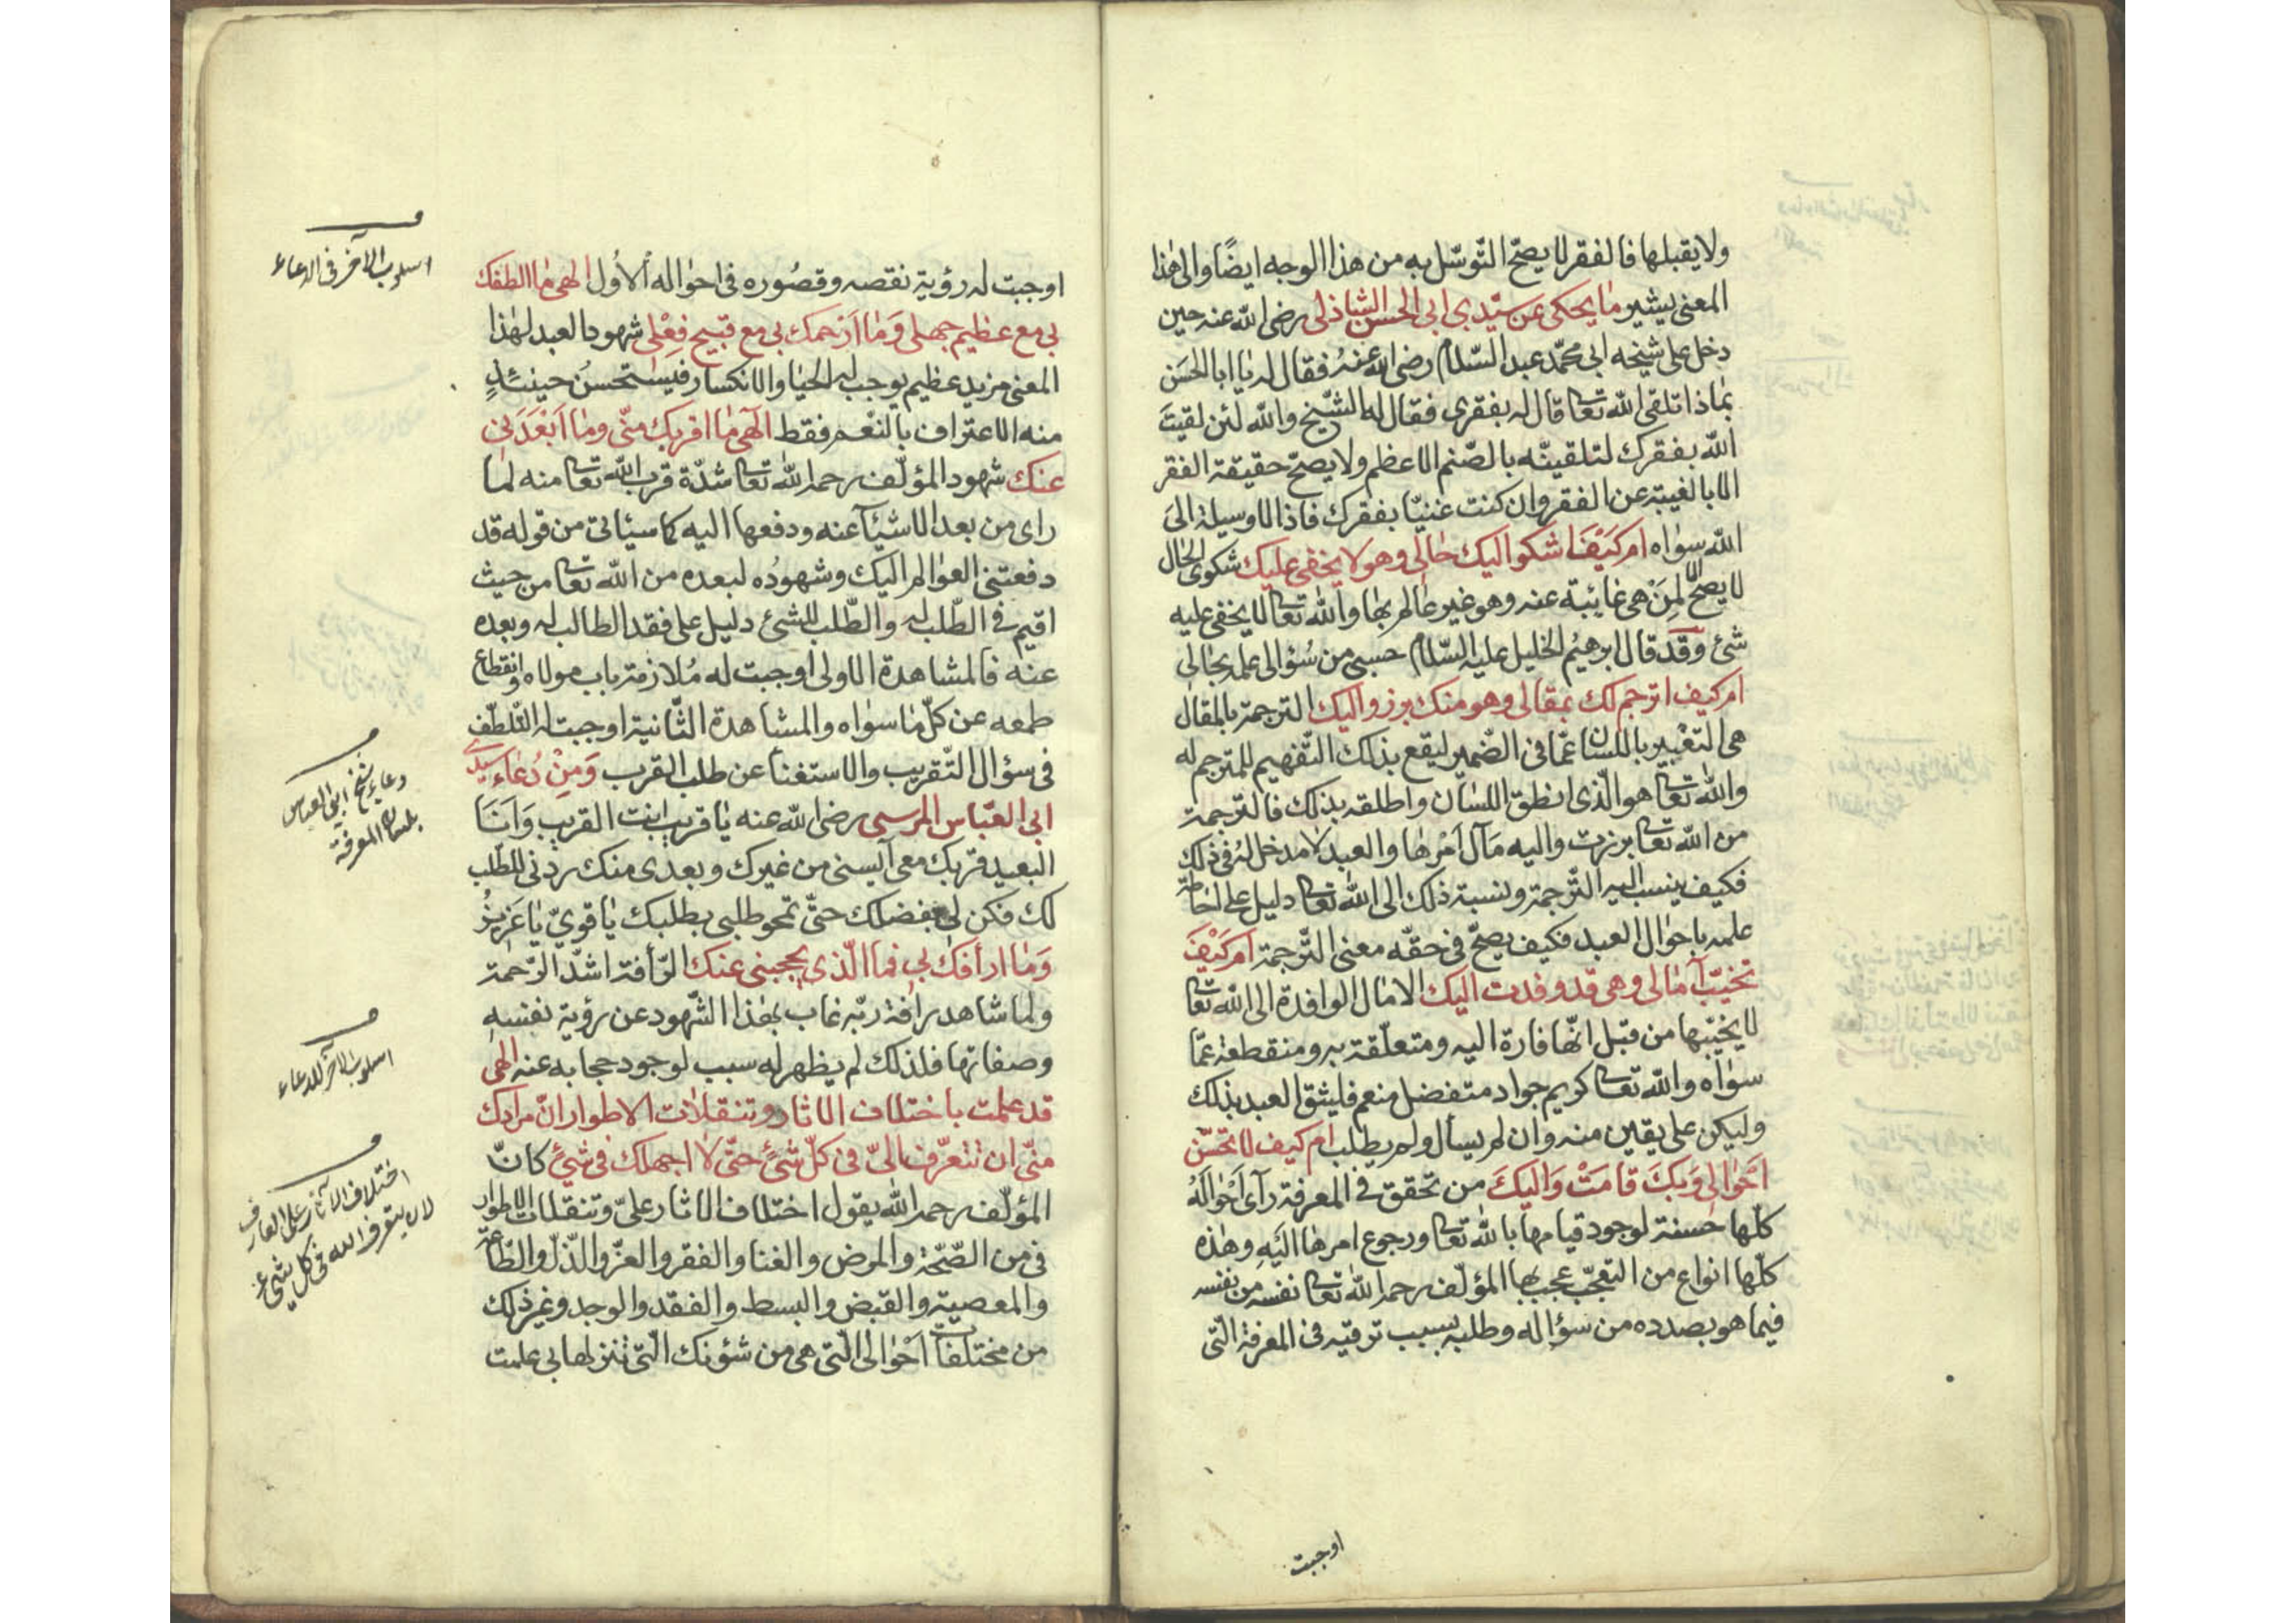 ولا يقبلها فالفقر لا يصحّ التّوسّل به من هذا الوجه ايضًا والى هٰذا
المعنى يشير مٰا يحكى عن سيّدي ابى الحسن الشاذلى رضى الله عنه حين
دخل على شيخه ابى محمّد عبد السّلام رضى الله عنهُ فقال له يٰا ابا الحسَن
بمٰاذا تلقى الله تعا قال له بفقرى فقال له الشّيخ والله لئن لقيتَ
الله بفقرك لتلقينّه بالصّنم الاعظم ولا يصحّ حقيقة الفقر
الا بالغيبة عن الفقر وان كنت غنيّا بفقرك فاذا لا وسيلة الىَ
الله سوٰاه ام كَيْفَ اشكوا اليك حٰالى وهو لا يخفى عليك شكوى الحٰال
لا يصحّ لمِنَ هى غائبة عنه وهو غير عٰالم بهٰا والله تعا لا يخفى عليه
شئ وقد قال ابرهيم الخليل عليه السّلام حسبى من سُؤالى علمه بحٰالى
ام كيف اترجم لك بمقالى وهو منك برز واليك الترجمة بالمقال
هى التعْبير باللسان عمّا فى الضّمير ليقع بذلك التّفهيم للمترجم له
والله تعا هو الّذى انطق اللسٰان واطلقه بذلك فالترجمة
من الله تعا برزت واليه مَآل اَمْرهٰا والعبد لا مدخل لهُ فى ذلك
فكيف ينسب اليه التّرجمة ونسبة ذلك الى الله تعا دليل على احٰاطة
علمه باحوٰال العبد فكيف يصحّ فى حقّه معنى التّرجمة ام كَيْفَ
تخيّب آمٰالى وهى قد وفدت اليك الامٰال الوافدة الى الله تعا
لا يخيّبها من قبل انّها فارة اليه ومتعلّقة به ومنقطعة عمّا
سوٰاه والله تعا كريم جواد متفضل منعم فليثق العبد بذلك
وليكن على يقين منه وان لم يسأل ولم يطلب ام كيف لا تحسّن
اَحْوٰالى وَبكَ قامَتْ وَاليكَ من تحقق فى المعرفة رآى اَحْوٰالَهُ
كلّها حسنة لوجود قيامها بالله تعا ورجوع امرهٰا اليَهِ وهٰذه
كلّها انواع من التعجّب عجب بها المؤلّف رحمه الله تعا نفسه من نفسه
فيما هو بصدده من سؤاله وطلبه بسبب ترقيه فى المعرفة الّتى
اوجبت
اوجبت له رؤية نقصه وقصُوره فى احوٰاله الاُول الهى مٰا الطفك
بى مع عظيم جهلى وَمٰا اَرْحمك بى مع قبيح فِعْلى شهود العبد لهٰذا
المعنى مزيد عظيم يوجب له الحيٰا والانكسار فيستحسنُ حينئذٍ
منه الاعتراف بالنعْم فقط الٓهى مٰا اقربك منّى ومٰا اَبْعَدَنى
عنك شهود المؤلّف رحمه الله تعا شدّة قرب الله تعا منه لما
راى من بعد الاشئآ عنه ودفعها اليه كما سيأتى من قوله قد
دفعتنى العوٰالم اليك وشهودُه لبعده من الله تعا من حيث
اقيم فى الطّلب له والطّلب للشئ دليل على فقد الطالب له وبعده
عنه فالمشاهدة الاولى اوجبت له مُلازمة باب مولاه وانقطاع
طمعه عن كلّ مٰا سوٰاه والمشاهدة الثّانية اوجبت له التّلطّف
فى سؤال التّقريب والاستغنآ عن طلب القرب وَمِنْ دُعٰاء سيدى
ابى العبّاس المرسى رضى الله عنه يٰا قريب انت القريب وَاَنَا
البعيد قربك منى آيسنى من غيرك وبعدى منك ردّنى للطّلب
لك فكن لى بفضلك حتّى تمحو طلبى بطلبك يٰا قوىّ يٰا عَزيزُ
وَمٰا ارأفك بى فما الّذى يحجبنى عنك الرّأفة اشدّ الرّحمة
ولما شاهد رافة ربّه غاب بهٰذا الشّهود عن رؤية نفسه
وصفاتها فلذلك لم يظهر له سبب لوجود حجابه عنه الهى
قد علمت باختلاف الاثار وتنقلات الاطوار انّ مرادك
منّى ان تتعرّف الىّ فى كلّ شئٍ حتّى لا اجهلك فى شئٍ كانّ
المؤلّف رحمه الله يقول اختلاف الاثار علىّ وتنقلات الاطوار
فى من الصّحّة والمرض والغنا والفقر والعزّ والذّلّ والطّاعة
والمعصية والقبض والبسط والفقد والوجد وغير ذلك
من مختلفات اَحْوٰالى الّتى هى من شئونك الّتى تنزلها بى علمت
اسلوب الآخر فى الدعاء
دعاء شيخ ابى العباس
بلسان المعرفة
اسلوب الآخر للدعاء
اختلاف الآثار على العارف
لان يتعرف الله فى كل شئ